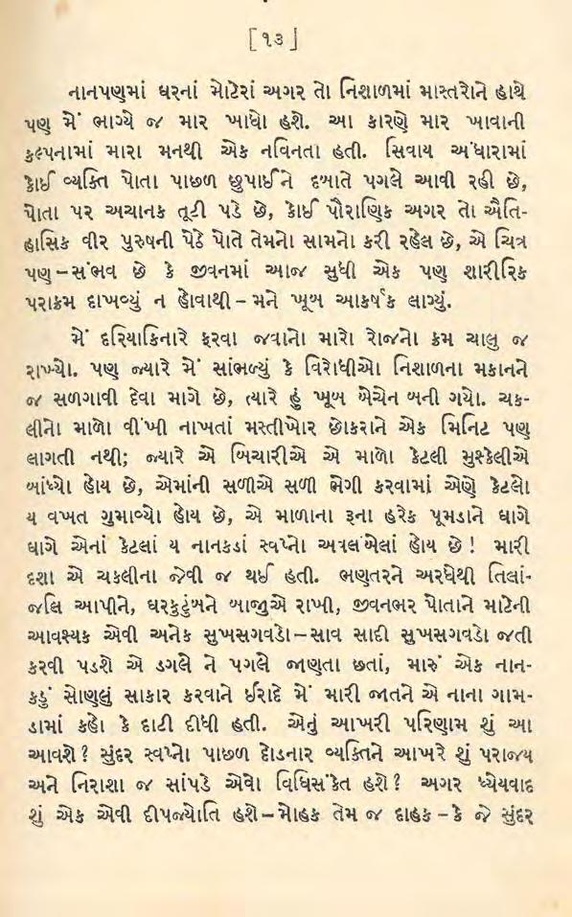 [૧૩]
નાનપણમાં ઘરનાં મોટેરાં અગર તો નિશાળમાં માસ્તરોને હાથે
પણ મેં ભાગ્યે જ માર ખાધો હશે. આ કારણે માર ખાવાની
કલ્પનામાં મારા મનથી એક નવિનતા હતી. સિવાય અંધારામાં
કોઈ વ્યક્તિ પોતા પાછળ છુપાઈને દબાતે પગલે આવી રહી છે,
પોતા પર અચાનક તૂટી પડે છે, કોઈ પૌરાણિક અગર તો ઐતિ-
હાસિક વીર પુરુષની પેઠે પોતે તેમનો સામનો કરી રહેલ છે, એ ચિત્ર
પણ – સંભવ છે કે જીવનમાં આજ સુધી એક પણ શારીરિક
પરાક્રમ દાખવ્યું ન હોવાથી – મને ખૂબ આકર્ષક લાગ્યું.
મેં દરિયાકિનારે ફરવા જવાનો મારો રોજનો ક્રમ ચાલુ જ
રાખ્યો. પણ જ્યારે મેં સાંભળ્યું કે વિરોધીઓ નિશાળના મકાનને
જ સળગાવી દેવા માગે છે, ત્યારે હું ખૂબ બેચેન બની ગયો. ચક-
લીનો માળો વીંખી નાખતાં મસ્તીખોર છોકરાને એક મિનિટ પણ
લાગતી નથી; જ્યારે એ બિચારીએ એ માળો કેટલી મુસ્કેલીએ
બાંધ્યો હોય છે, એમાંની સળીએ સળી ભેગી કરવામાં એણે કેટલો
ય વખત ગુમાવ્યો હોય છે, એ માળાના રૂના હરેક પૂમડાને ધાગે
ધાગે એનાં કેટલાં ય નાનકડાં સ્વપ્નો અવલંબેલાં હોય છે! મારી
દશા એ ચકલીના જેવી જ થઈ હતી. ભણુતરને અરધેથી તિલાં-
જલિ આપીને, ઘરકુટુંબને બાજુએ રાખી, જીવનભર પોતાને માટેની
આવશ્યક એવી અનેક સુખસગવડો – સાવ સાદી સુખસગવડો જતી
કરવી પડશે એ ડગલે ને પગલે જાણતા છતાં, મારું એક નાન-
કડું સોણલું સાકાર કરવાને ઈરાદે મેં મારી જાતને એ નાના ગામ-
ડામાં કહો કે દાટી દીધી હતી. એનું આખરી પરિણામ શું આ
આવશે? સુંદર સ્વપ્નો પાછળ દોડનાર વ્યક્તિને આખરે શું પરાજય
અને નિરાશા જ સાંપડે એવો વિધિસંકેત હશે? અગર ધ્યેયવાદ
શું એક એવી દીપજ્યોતિ હશે – મોહક તેમ જ દાહક – કે જે સુંદર